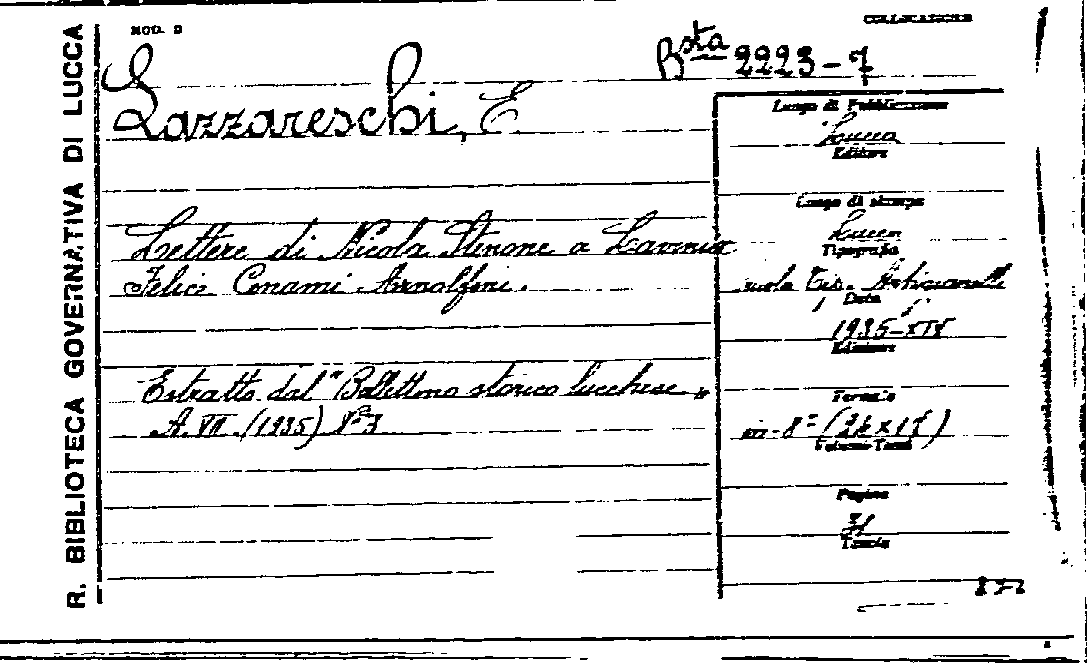 R. BIBLIOTECA GOVERNATIVA DI LUCCA
MOD. B
COLLOCAZIONE
Bsta 2223-7
Lazzareschi, E.
Lettere di Nicola Stenone a Lavinia
Felici Cenami Arnolfini.
Estratto dal "Bollettino storico lucchese„
A. VII. (1935) Nº 3
Luogo di Pubblicazione
Lucca
Editore
Luogo di stampa
Lucca
Tipografia
scuola Tip. Artigianelli
Data
1935-XIV
Edizione
Formato
in-8º (24x17)
Volume-Tomi
Pagine
31
Tavole